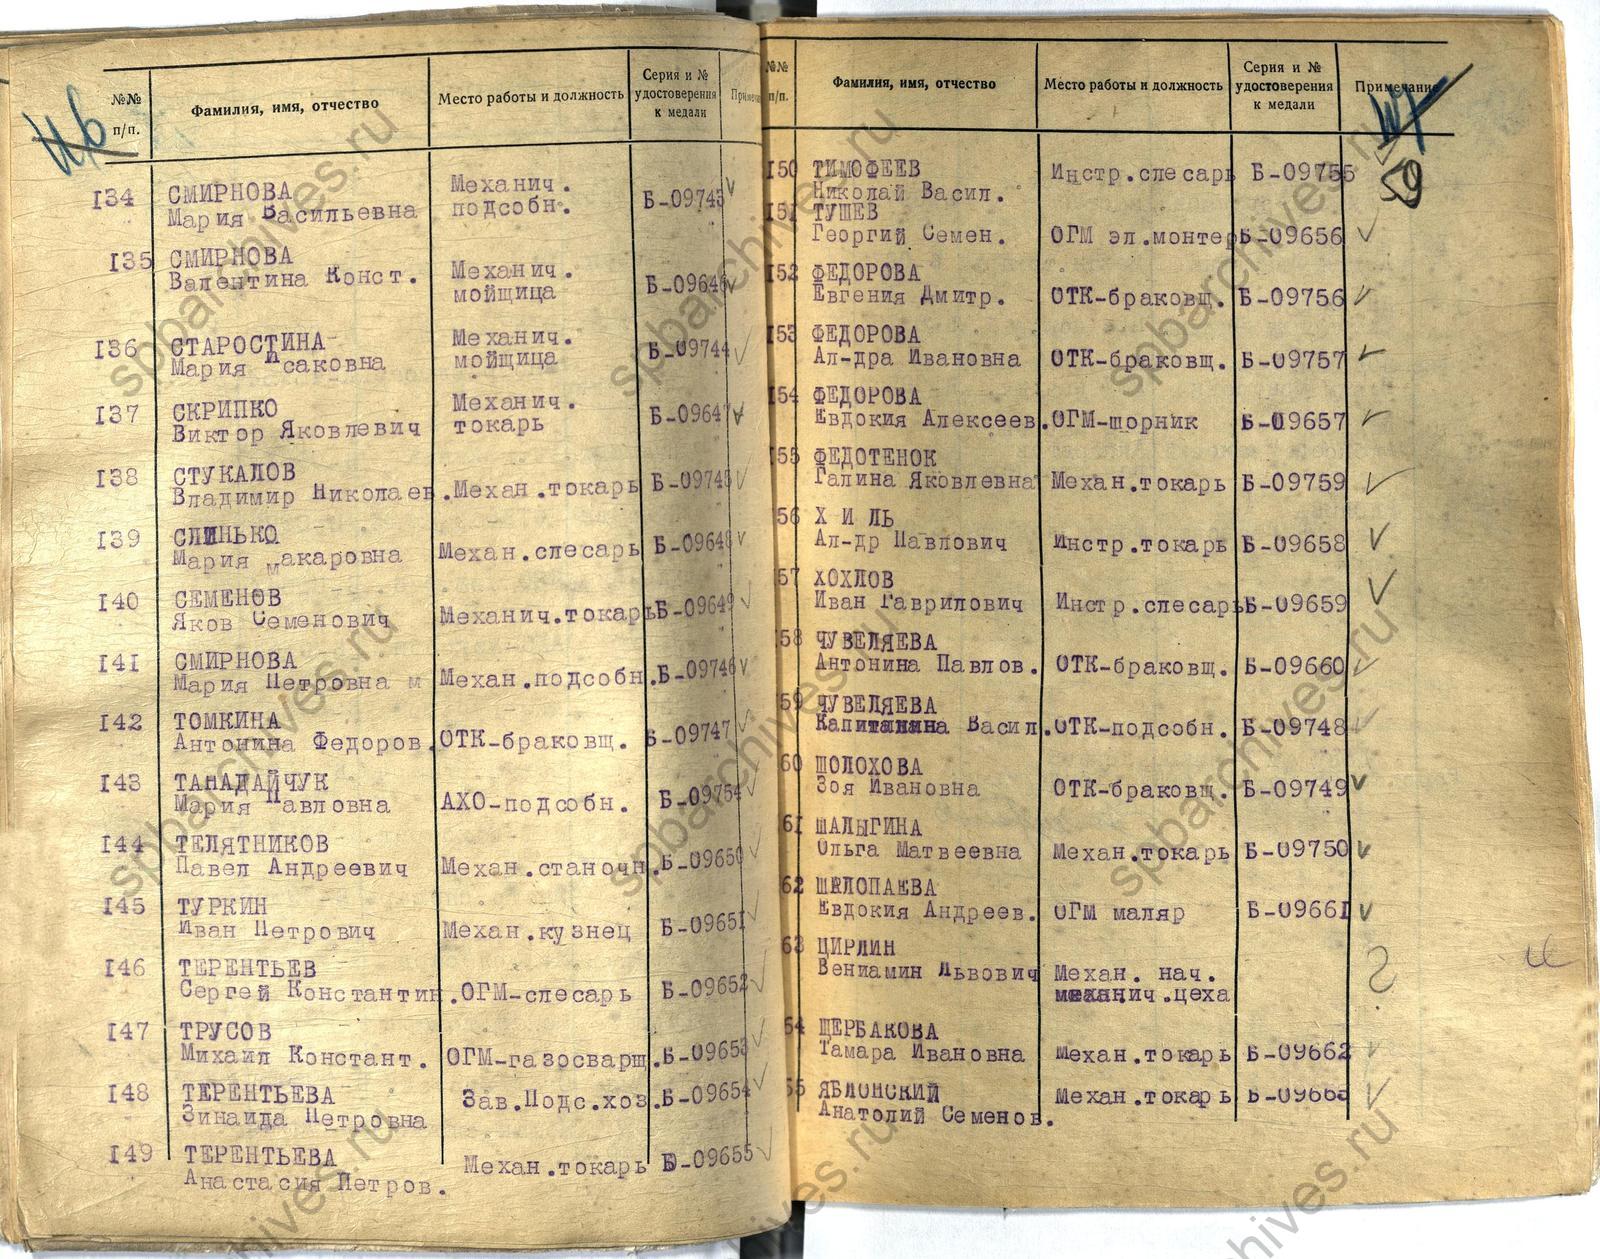 №№ п/п.
Фамилия, имя, отчество
Место работы и должность
Серия и № удостоверения к медали
134 СМИРНОВА Механич. Б-09743
Мария Васильевна подсобн.
135 СМИРНОВА
Валентина Конст. Механич. Б-09646
мойщица
136 СТАРОСТИНА Механич. Б-09744
Мария Исаковна мойщица
137 СКРИПКО Механич. Б-09647
Виктор Яковлевич токарь
138 СТУКАЛОВ
Владимир Николаев. Механ.токарь Б-09745
139 СЛИНЬКО
Мария Макаровна Механ.слесарь Б-09648
140 СЕМЕНОВ
Яков Семенович Механич.токарь Б-09649
141 СМИРНОВА
Мария Петровна м Механ.подсобн. Б-09746
142 ТОМКИНА
Антонина Федоров. ОТК-браковщ. Б-09747
143 ТАНАДАЙЧУК
Мария Павловна АХО-подсобн. Б-09754
144 ТЕЛЯТНИКОВ
Павел Андреевич Механ.станочн. Б-09650
145 ТУРКИН
Иван Петрович Механ.кузнец Б-09651
146 ТЕРЕНТЬЕВ
Сергей Константин. ОГМ-слесарь Б-09652
147 ТРУСОВ
Михаил Констант. ОГМ-газосварщ. Б-09653
148 ТЕРЕНТЬЕВА Зав.Подс.хоз. Б-09654
Зинаида Петровна
149 ТЕРЕНТЬЕВА Механ.токарь Б-09655
Анастасия Петров.
№№ п/п.
Фамилия, имя, отчество
Место работы и должность
Серия и № удостоверения к медали
Примечание
59
150 ТИМОФЕЕВ Инстр.слесарь Б-09755
Николай Васил.
151 ТУШЕВ
Георгий Семен. ОГМ эл.монтер Б-09656
152 ФЕДОРОВА
Евгения Дмитр. ОТК-браковщ. Б-09756
153 ФЕДОРОВА
Ал-дра Ивановна ОТК-браковщ. Б-09757
154 ФЕДОРОВА
Евдокия Алексеев. ОГМ-шорник Б-09657
155 ФЕДОТЕНОК
Галина Яковлевна Механ.токарь Б-09759
56 Х И ЛЬ
Ал-др Павлович Инстр.токарь Б-09658
57 ХОХЛОВ
Иван Гаврилович Инстр.слесарь Б-09659
58 ЧУВЕЛЯЕВА
Антонина Павлов. ОТК-браковщ. Б-09660
59 ЧУВЕЛЯЕВА
Капиталина Васил. ОТК-подсобн. Б-09748
60 ШОЛОХОВА
Зоя Ивановна ОТК-браковщ. Б-09749
61 ШАЛЫГИНА
Ольга Матвеевна Механ.токарь Б-09750
62 ШЕЛОПАЕВА
Евдокия Андреев. ОГМ маляр Б-09661
63 ЦИРЛИН
Вениамин Львович Механ. нач.
механич.цеха
64 ЩЕРБАКОВА
Тамара Ивановна Механ.токарь Б-09662
65 ЯБЛОНСКИЙ Механ.токарь Б-09663
Анатолий Семенов.
spbarchives.ru